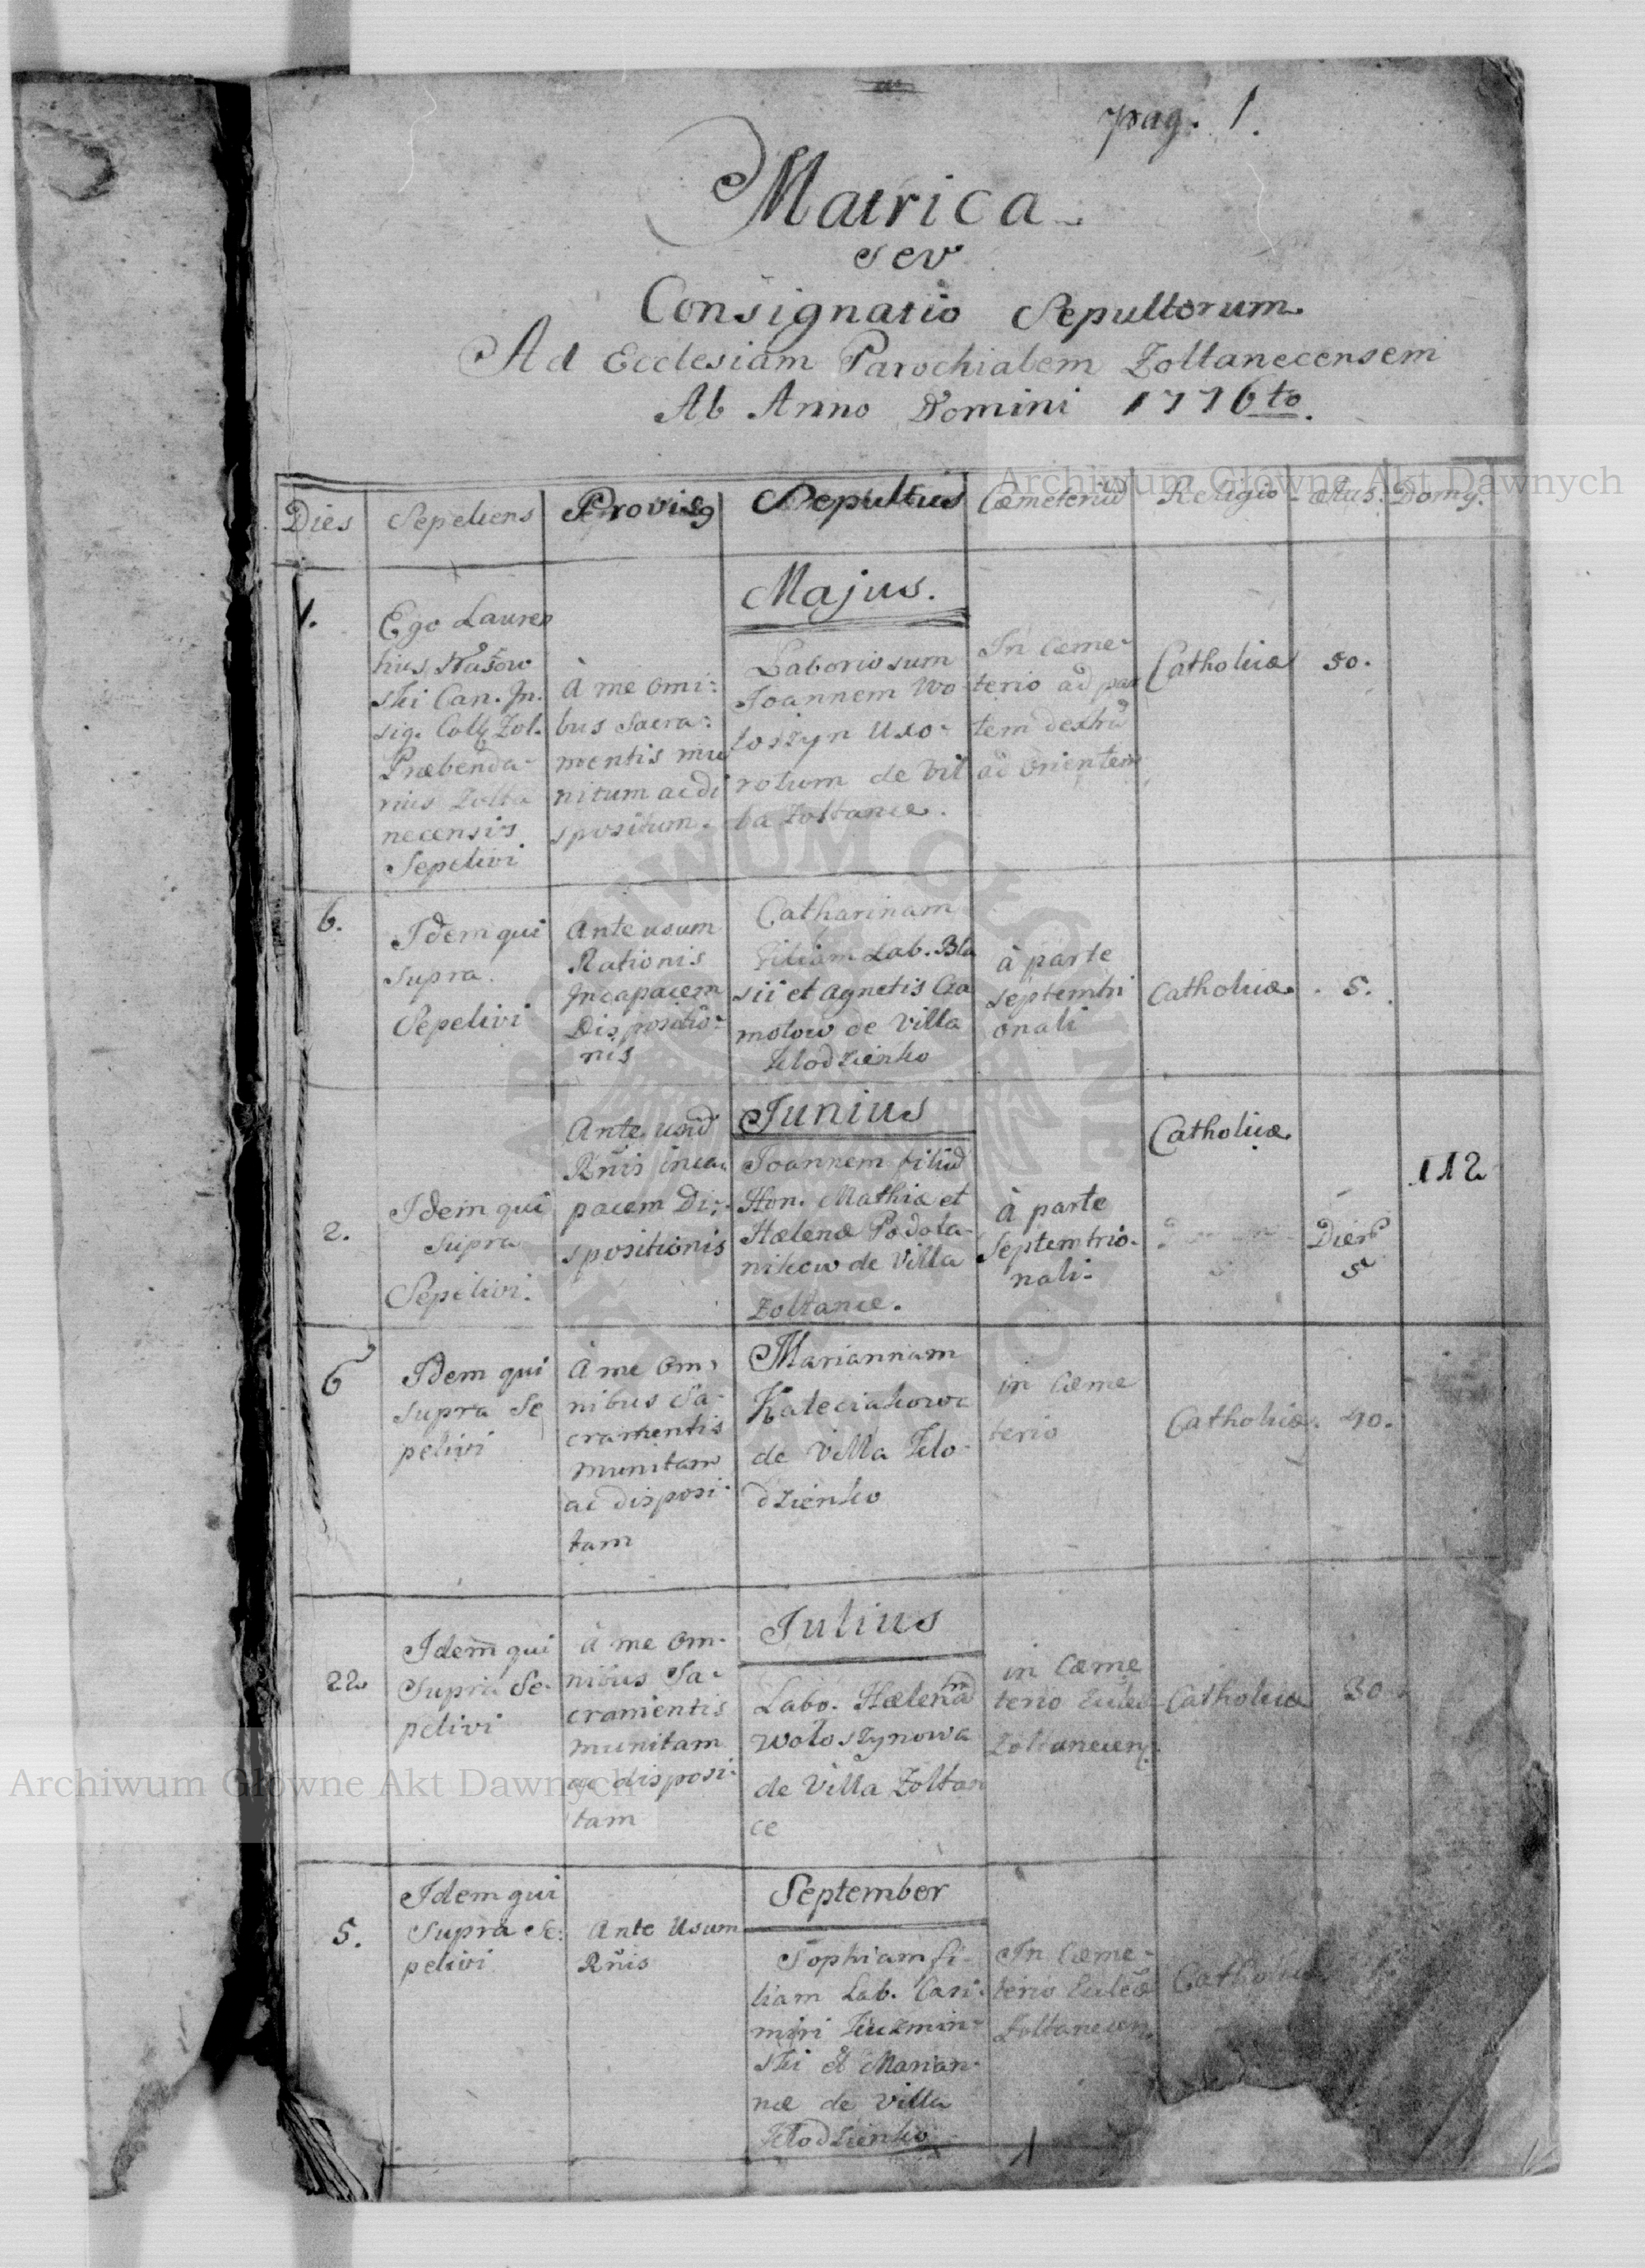 pag. 1.
Matrica
seu
Consignatio Sepultorum
Ad Ecclesiam Parochialem Zoltanecensem
Ab Anno Domini 1776to.
Dies Sepeliens Provis9 Sepultus Cæmeteriū Religio Ætas. Domg.
Majus.
1.
Ego Lauren
tius
ski Can. In.
sig. Coll Zol.
Præbenda-
rius Zolta
necensis
Sepelivi
à me omi:
bus Sacra:
mentis mu
nitum ac di
spositum.
Laboriosum
Joannem Wo
łoszyn Uxo-
ratum de Vil
la Zoltance.
In cæme-
terio ad par
tem dextrā
ad orientem
Catholicæ
50.
6.
Idem qui
supra
Sepelivi
Ante usum
Rationis
Incapacem
Dispositio-
nis
Catharinam
filiam Lab. Bla
sii et Agnetis Ga
molow de Villa
Kłodzienko
à parte
septemtri
onali
Catholicæ
5.
Junius
2.
Idem qui
supra
Sepelivi.
Ante usū
Rñis inca
pacem Di:
spositionis
Joannem filiū
Hon. Mathiæ et
Hælenæ Podola-
nikow de Villa
Zoltance.
à parte
Septemtrio-
nali.
Catholicæ
Dierū
5
112
6
Idem qui
supra Se
pelivi
À me om:
nibus Sa-
cramentis
munitam
ac disposi-
tam
Mariannam
de Villa Kło-
dzienko
in cæme
terio
Catholicæ.
40.
Julius
22
Idem qui
Supra Se-
pelivi
à me om-
nibus Sa-
cramentis
munitam
ac disposi-
tam
Labo. Hælenam
Wołoszynowa
de Villa Zoltan
ce
in cæme
terio Eccles
Zoltanecen.
Catholicæ
30
September
5.
Idem qui
Supra Se:
pelivi
Ante Usum
Rñis
Sophiam fi-
liam Lab. Casi-
miri Kuzmin-
ski et Marian-
næ de Villa
Kłodzienko
In Cæme-
terio Eccles
Zoltanecen.
Catholicæ
Archiwum Główne Akt Dawnych
Archiwum Główne Akt Dawnych